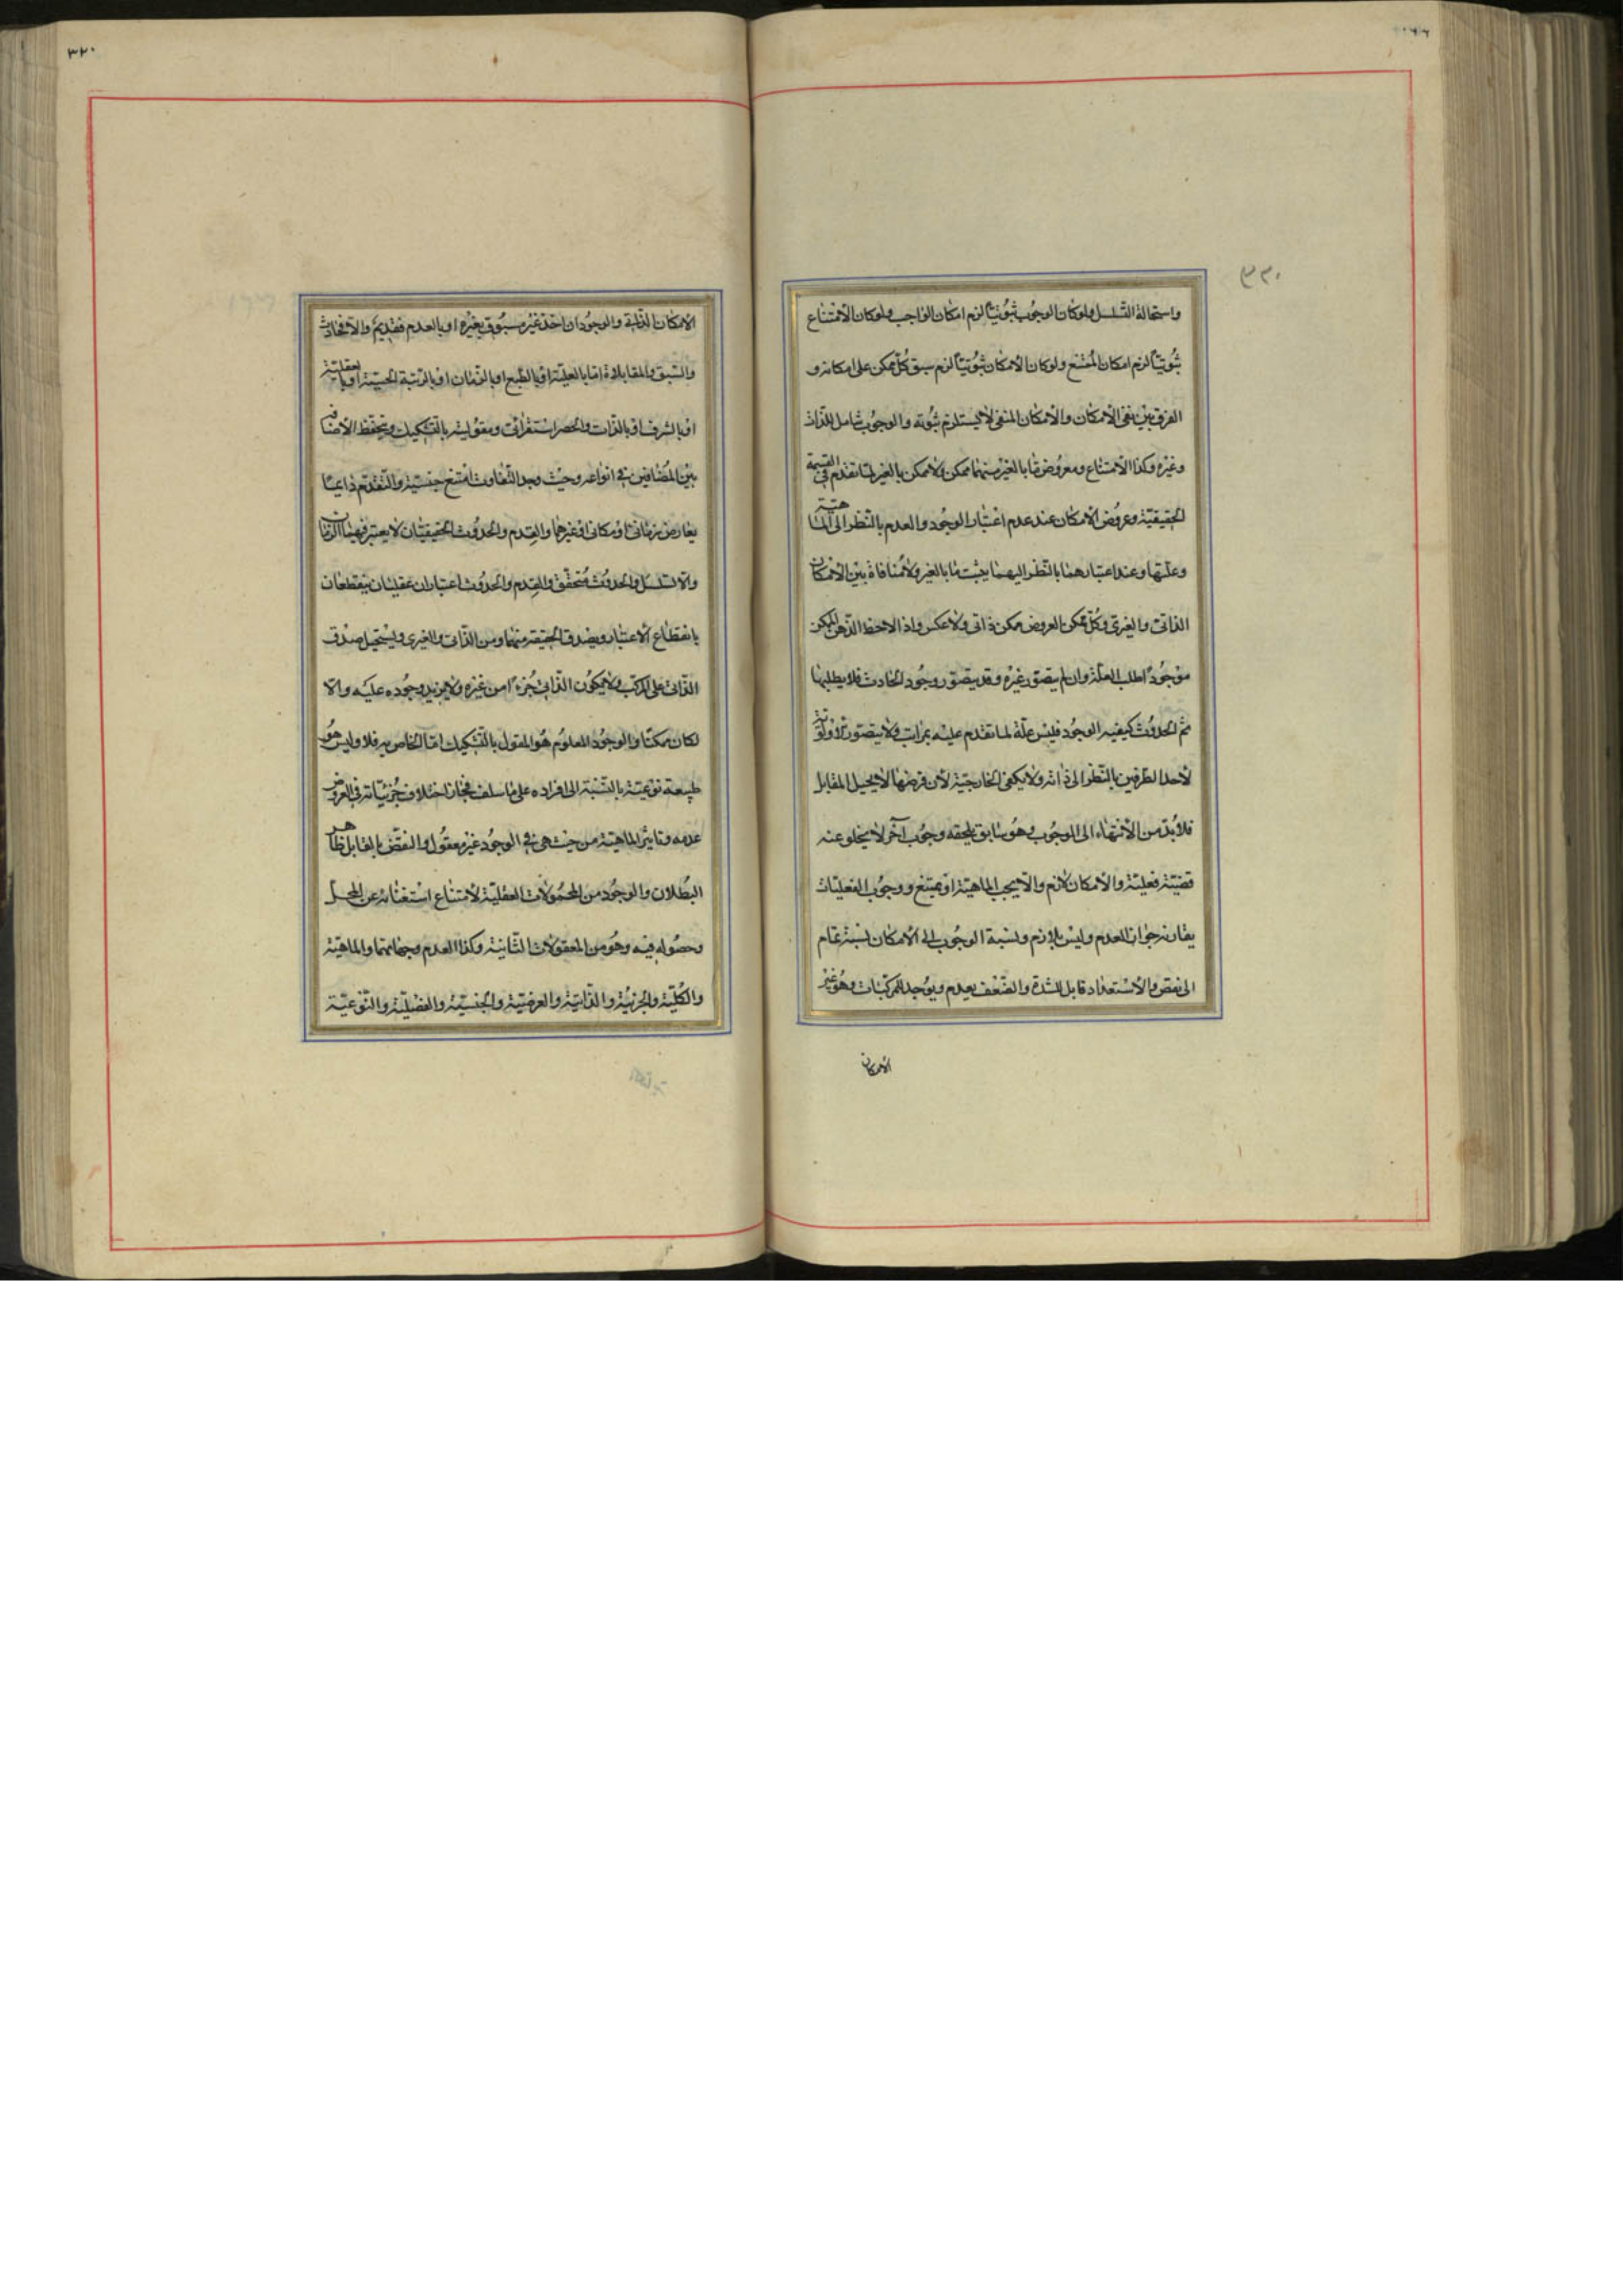 ٣٢٠
واستحالة التسلسل ولو كان الوجوب ثبوتيّاً لزم امكان الواجب ولو كان الامتناع
ثبوتيّاً لزم امكان الممتنع ولو كان الامكان ثبوتيّاً لزم سبق كلّ ممكن على امكانه و
الفرق بين نفى الامكان والامكان المنفى لا يستلزم ثبوته والوجوب شامل للذات
وغيره وكذا الامتناع ومعروض ما بالغير منهما ممكن ولا ممكن بالغير لما تقدم فى القسمة
الحقيقيّة وعروض الامكان عند عدم اعتبار الوجود والعدم بالنظر الى الماهيّة
وعلّتها وعند اعتبارهما بالنظر اليهما يثبت ما بالغير ولا منافاة بين الامكان
الذاتى والغيرى وكلّ ممكن العروض ممكن ذاتى ولا عكس واذا لاحظ الذهن الممكن
موجوداً طلب العلّة وان لم يتصوّر غيره وقد يتصوّر وجود الحادث فلا يطلبها
ثم الحدوث كيفيه الوجود فليس علّة لما تقدم عليه بمراتب ولا يتصور الاولوية
لاحد الطرفين بالنظر الى ذاته ولا يكفى الخارجيّة لان فرضها لا يحيل المقابل
فلا بدّ من الانتهاء الى الوجوب وهو سابق يلحقه وجوب آخر لا يخلو عنه
قضيّة فعليّة والامكان لازم والّا يجب الماهيّة او يمتنع ووجوب الفعليّات
يقارنه جواز العدم وليس بلازم ونسبة الوجوب الى الامكان نسبة تمام
الى نقص والاستعداد قابل للشدّة والضعف يعدم ويوجد للمركبات وهو غير
الامكان
٣٢٠
الامكان الذاتى والوجود ان اخذ غير مسبوق بغيره او بالعدم فقديم والّا فحادث
والسبق والمقابلاه امّا بالعليّة او بالطبع او بالزمان او بالرتبة الحسيّة او العقليّة
او بالشرف او بالذات والحصر استقرائى ومقوليته بالتشكيك وتحفظ الاضافة
بين المضافين فى انواعه وحيث وجد التفاوت امتنع جنسيته والتقدم دائماً
يعارض زمانى او مكانى او غيرهما والقدم والحدوث الحقيقيّان لا يعتبر فيهما الزمان
والّا تسلسل والحدوث متحقّق والقدم والحدوث اعتباران عقليّان ينقطعان
بانقطاع الاعتبار ويصدق الحقيقة منهما ومن الذاتى والغيرى ويستحيل صدق
الذاتى على المركّب ولا يكون الذاتى جزءًا من غيره ولا يزيد وجوده عليه والّا
لكان ممكناً والوجود المعلوم هو المقول بالتشكيك امّا الخاص به فلا وليس هو
طبيعة نوعيّة بالنسبة الى افراده على ما سلف فجاز اختلاف جزئيّاته فى العروض
عدمه وتاثير الماهيّة من حيث هى فى الوجود غير معقول والنقض بالقابل ظاهر
البطلان والوجود من المحمولات العقليّة لامتناع استغنائه عن المحلّ
وحصوله فيه وهو من المعقولات الثانية وكذا العدم وجهاتهما والماهيّة
والكليّة والجزئيّة والذاتيّة والعرضيّة والجنسيّة والفصليّة والنوعيّة